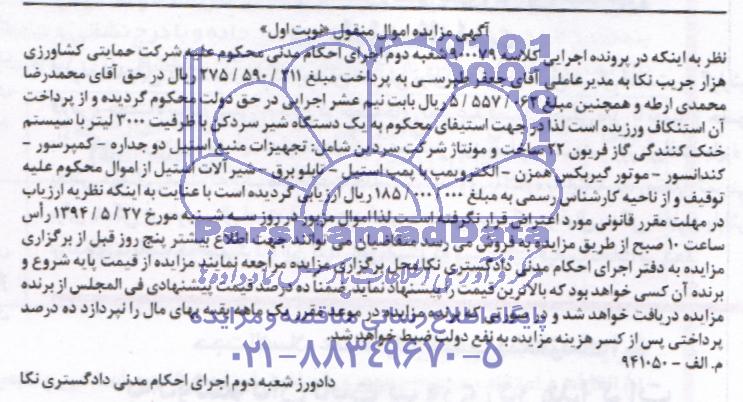 آگهی مزایده اموال منقول «نوبت اول»
نظر به اینکه در پرونده اجرایی کلاسه شعبه دوم اجرای احکام مدنی محکوم علیه شرکت حمایتی کشاورزی
هزار جریب نکا به مدیر عاملی آقای جعفر طبرسی به پرداخت مبلغ ۲۷۵/۵۹۰/۲۱۱ ریال در حق آقای محمدرضا
محمدی ارطه و همچنین مبلغ ۵/۵۵۷/۰۶۲ ریال بابت نیم عشر اجرایی در حق دولت محکوم گردیده و از پرداخت
آن استنکاف ورزیده است لذا در جهت استیفای محکوم به یک دستگاه شیر سردکن با ظرفیت ۳۰۰۰ لیتر با سیستم
خنک کنندگی گاز فریون ۲۲ ساخت و مونتاژ شرکت سردین شامل: تجهیزات منبع استیل دو جداره - کمپرسور -
کندانسور - موتور گیربکس همزن - الکتروپمپ با پمپ استیل - تابلو برق - شیرآلات استیل از اموال محکوم علیه
توقیف و از ناحیه کارشناس رسمی به مبلغ ۱۸۵/۰۰۰/۰۰۰ ریال ارزیابی گردیده است با عنایت به اینکه نظریه ارزیاب
در مهلت مقرر قانونی مورد اعتراض قرار نگرفته است لذا اموال مزبور در روز سه شنبه مورخ ۱۳۹۴/۵/۲۷ رأس
ساعت ۱۰ صبح از طریق مزایده به فروش می رسد متقاضیان می توانند جهت اطلاع بیشتر پنج روز قبل از برگزاری
مزایده به دفتر اجرای احکام مدنی دادگستری نکا محل برگزاری مزایده مراجعه نمایند مزایده از قیمت پایه شروع و
برنده آن کسی خواهد بود که بالاترین قیمت را پیشنهاد نماید ضمنا ده درصد قیمت پیشنهادی فی المجلس از برنده
مزایده دریافت خواهد شد و در صورتی که برنده مزایده در موعد مقرر یک ماهه بقیه بهای مال را نپردازد ده درصد
پرداختی پس از کسر هزینه مزایده به نفع دولت ضبط خواهد شد.
م. الف - ۹۴۱۰۵۰
دادورز شعبه دوم اجرای احکام مدنی دادگستری نکا
ParsNamadData
مرکز فرآوری اطلاعات پارس نماد داده ها
پایگاه اطلاع رسانی مناقصه و مزایده
۰۲۱-۸۸۳۴۹۶۷۰-۵